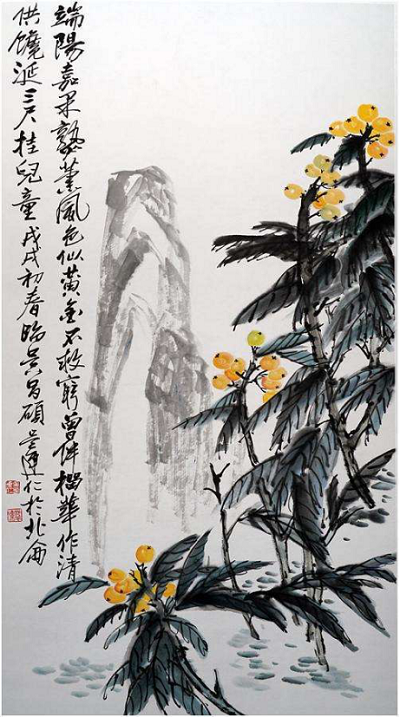 端陽嘉果熟薰風色似黃金不救窮曾伴榴華作清
供饞涎三尺挂兒童戊戌初春臨吳昌碩仁於北